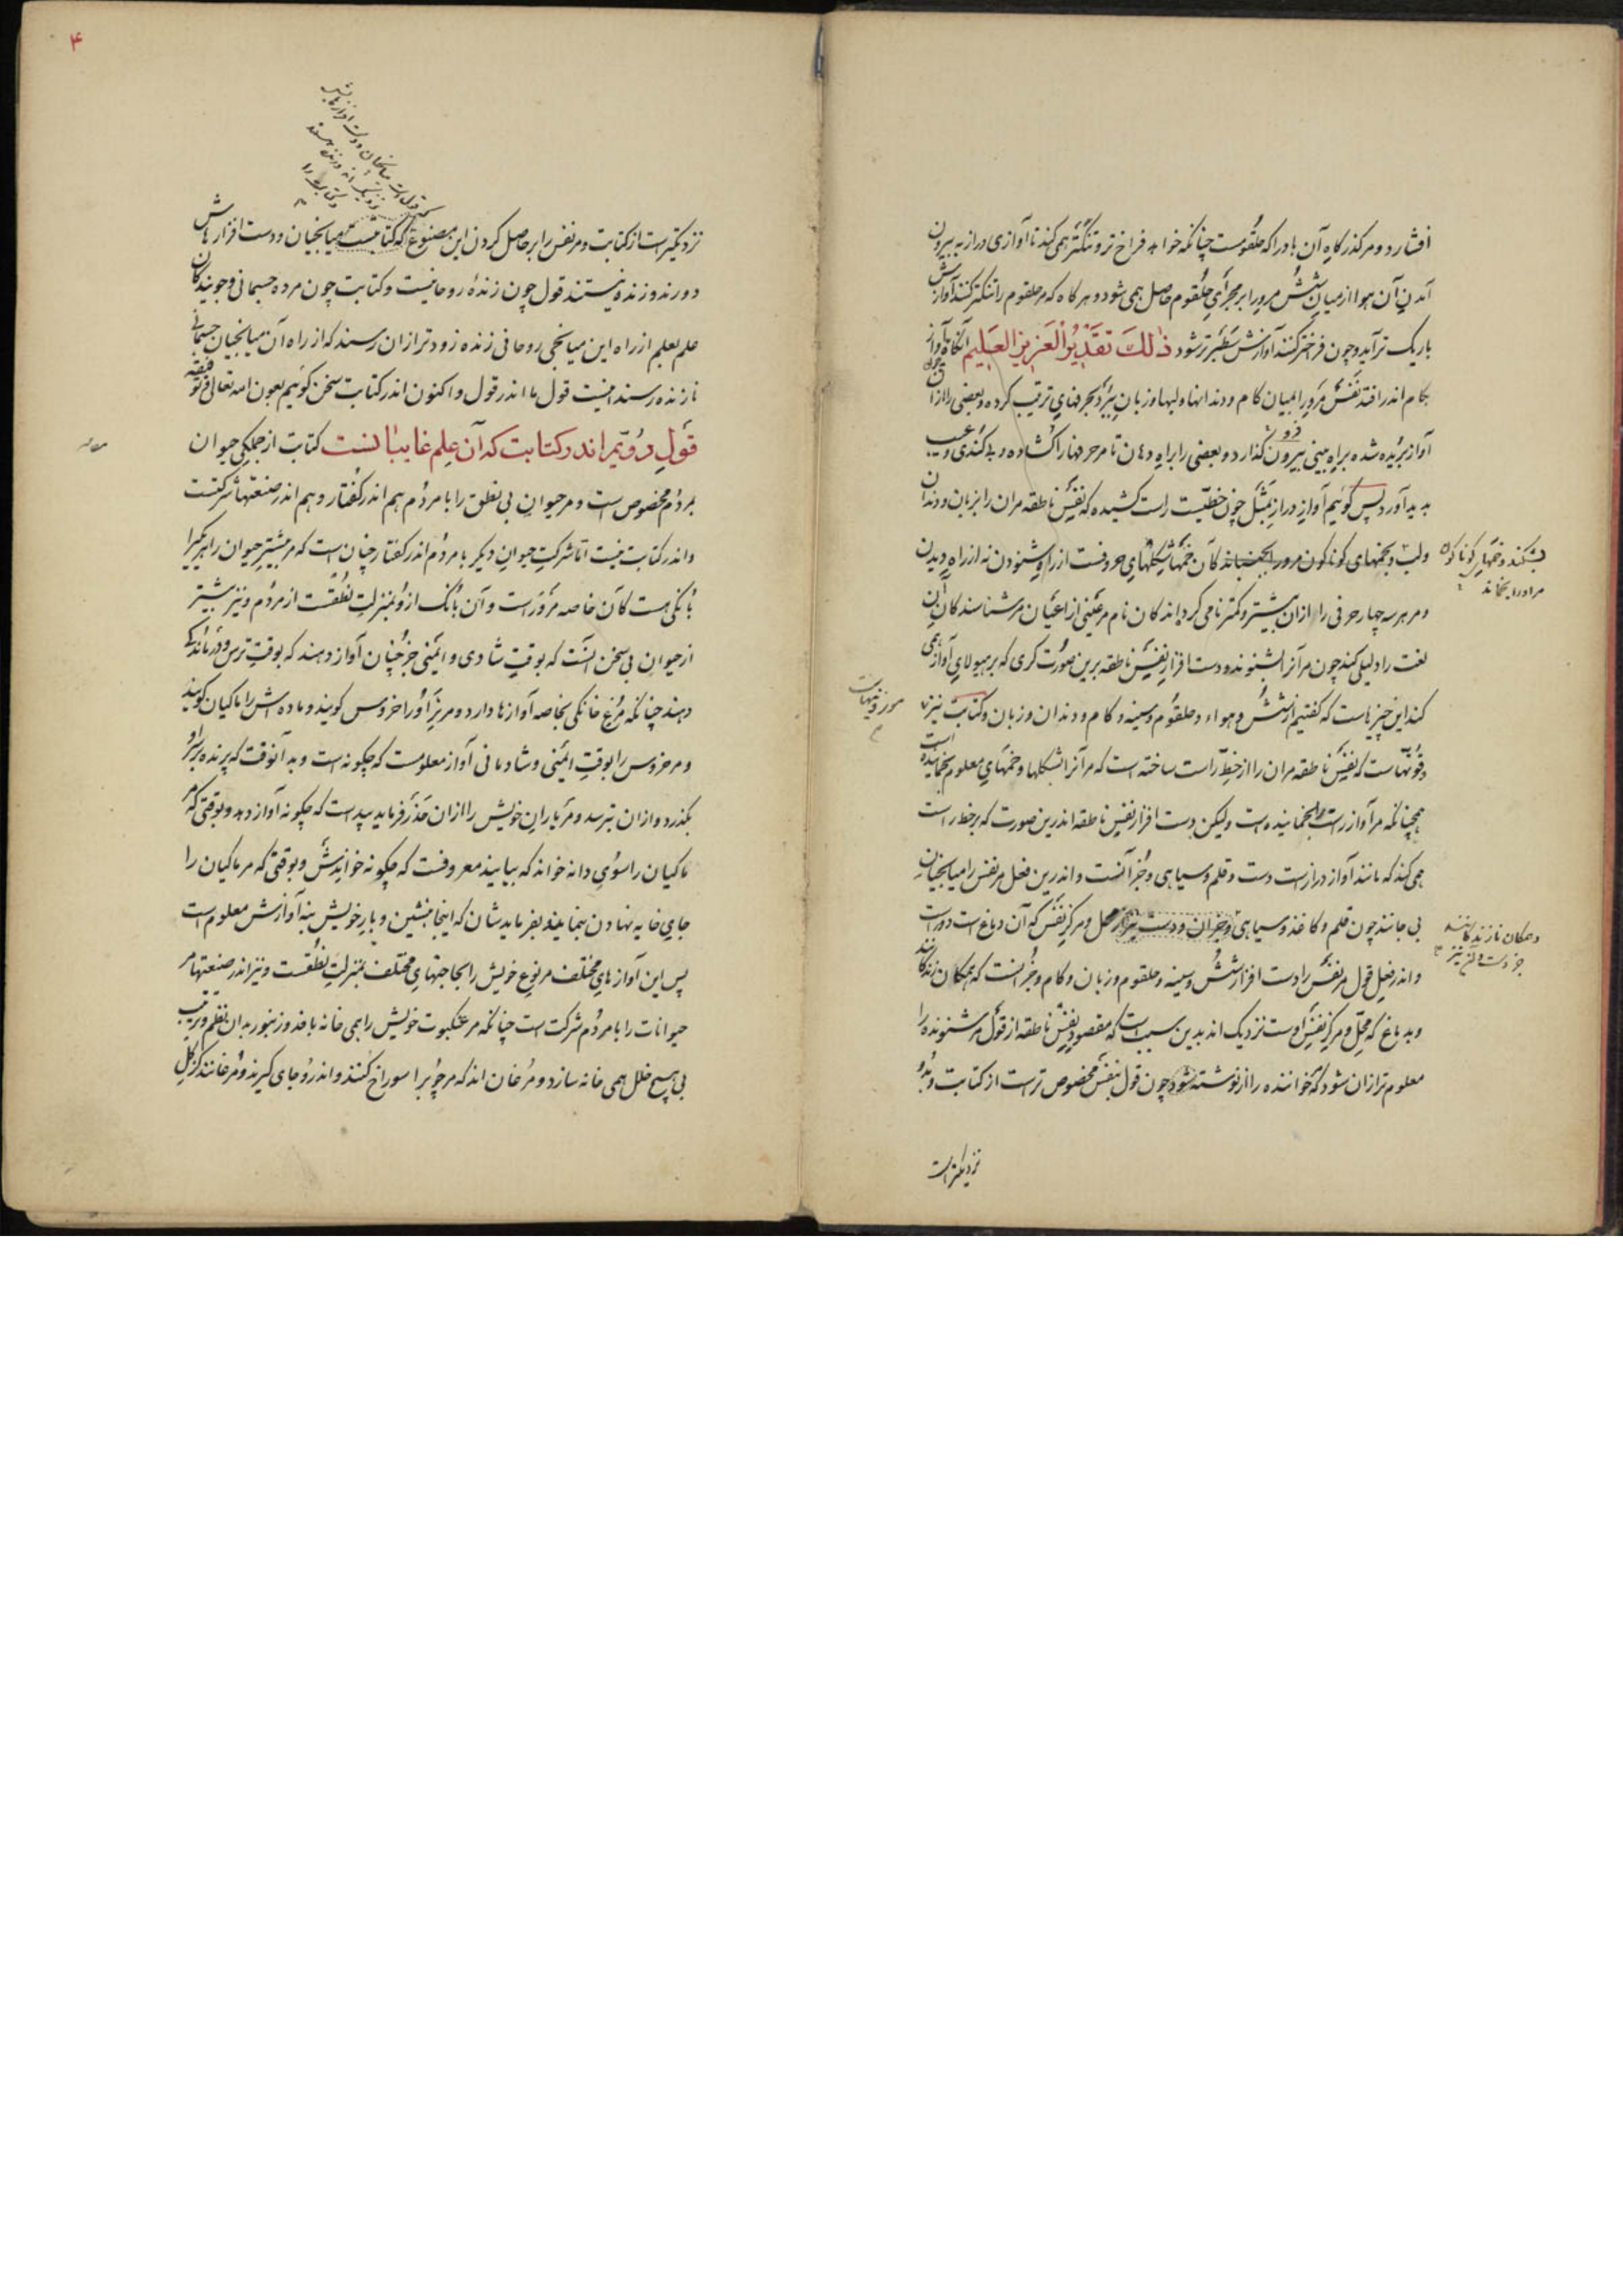 افشارد و مر کذرکاه آن باد را که حلقومست چنانکه خواهد فراخ تر و تنکتر همی کند تا آوازی دراز به بیرون
آمدن آن هوا از میان شش مرورا بر مجرای حلقوم حاصل همی شود و هر کاه که مر حلقوم را تنکتر کند آوازش
باریک تر آید و چون فراختر کند آوازش سطبرتر شود ذلك تقدیر العزیز العلیم آنکاه آن آواز
بکام اندر افتد نفس مرورا بمیان کام و دندانها و لبها و زبان ببرد و بحرفهای ترتیب کرده و بعضی را ازان
آواز بریده شده براه بینی بیرون کذارد و بعضی را براه دهان تا مر حرفها را کشاده و بی کندی و عیب
بدید آورد پس کوئیم آواز دراز بمثل چون خطیست راست کشیده که نفس ناطقه مران را بزبان و دندان
ولب و بخمهای کوناکون مرورا بجنباند کآن خمها شکلهای حروفست از راه شنودن نه از راه دیدن
بشکند و خمهای کوناکون
مر اورا بخماند
و مر هر سه چهار حرفی را ازان بیشتر و کمتر نامی کرداند کان نام مر عینی از اعیان مر شناسندکان آن
لغت را دلیلی کند چون مر آنرا بشنوند و دست افزار نفس ناطقه برین صورت کری که بر هیولای آواز همی
کند این چیزهاست که کفتیم از شش و هواء و حلقوم و سینه و کام و دندان و زبان و کتابت نیز
و قوتهاست که نفس ناطقه مران را از خط راست ساخته است که مر آنرا بشکلها و خمهای معلوم بخمانیده است
همچنانکه مر آواز راست را بخمانیده است ولیکن دست افزار نفس ناطقه اندرین صورت که بر خط راست
همی کند که مانند آواز درازست دست و قلم و سیاهی و جز آنست و اندرین فعل مر نفس را میانجیان
بی جانند چون قلم و کاغذ و سیاهی و جز آن و دست نیز از محل و مرکز نفس که آن دماغ است دور است
و اندر فعل قول مر نفس را دست افزار شش و سینه و حلقوم و زبان و کام و جز آنست که همکان زندکانند
و بدماغ که محل و مرکز نفس اوست نزدیک اند بدین سببست که مقصود نفس ناطقه از قول مر شنونده را
معلوم تر ازان شود که خواننده را از نوشته شود چون قول بنفس مخصوص تر است از کتابت و بدو
نزدیکتر است
۴
نزدیکتر است از کتابت و مر نفس را بر حاصل کردن این مصنوع که کتابتست میانجیان و دست افزارهاش
دورند و زنده نیستند قول چون زندهٔ روحانیست و کتابت چون مرده جسمانی و جویندکان
علم بعلم از راه این میانجی روحانی زنده زودتر ازان رسند که از راه آن میانجیان جسمانی
نازنده رسند اینست قول ما اندر قول و اکنون اندر کتابت سخن کوئیم بعون الله تعالی و توفیقه
قول دویم اندر کتابت که آن علم غایبانست کتابت از جملکی حیوان
بمردم مخصوص است و مر حیوان بی نطق را با مردم هم اندر کفتار و هم اندر صنعتها شرکتست
و اندر کتابت نیست اما شرکت حیوان دیکر با مردم اندر کفتار چنان است که مر بیشتر حیوان را هر یکیرا
بانکی هست کآن خاصه مرورا است و آن بانک ازو بمنزلت نطقست از مردم و نیز بیشتر
از حیوان بی سخن آنست که بوقت شادی و ایمنی جز چنان آواز دهند که بوقت ترس و درماندکی
دهند چنانکه مرغ خانکی بخاصه آوازها دارد و مر نر آورا خروس کویند و ماده اش را ماکیان کویند
و مر خروس را بوقت ایمنی و شادمانی آواز معلومست که چکونه است و بدآنوقت که پرنده بر سر او
بکذرد و ازان بترسد و مر یاران خویش را ازان حذر فرماید پیداست که چکونه آواز دهد و بوقتی که مر
ماکیان را سوی دانه خواند که بیابیند معروفست که چکونه خواندش و بوقتی که مر ماکیان را
جای خایه نهادن بنماید و بفرمایدشان که اینجا بنشین و بار خویش بنه آوازش معلوم است
پس این آوازهای مختلف مر نوع خویش را بحاجتهای مختلف بمنزلت نطقست و نیز اندر صنعتها مر
حیوانات را با مردم شرکت است چنانکه مر عنکبوت خویش را همی خانه بافد و زنبور بدان نظم و ترتیب
بی هیچ خلل همی خانه سازد و مرغان اند که مر چوبرا سوراخ کنند و اندرو جای کیرند و مرغانند کز کل